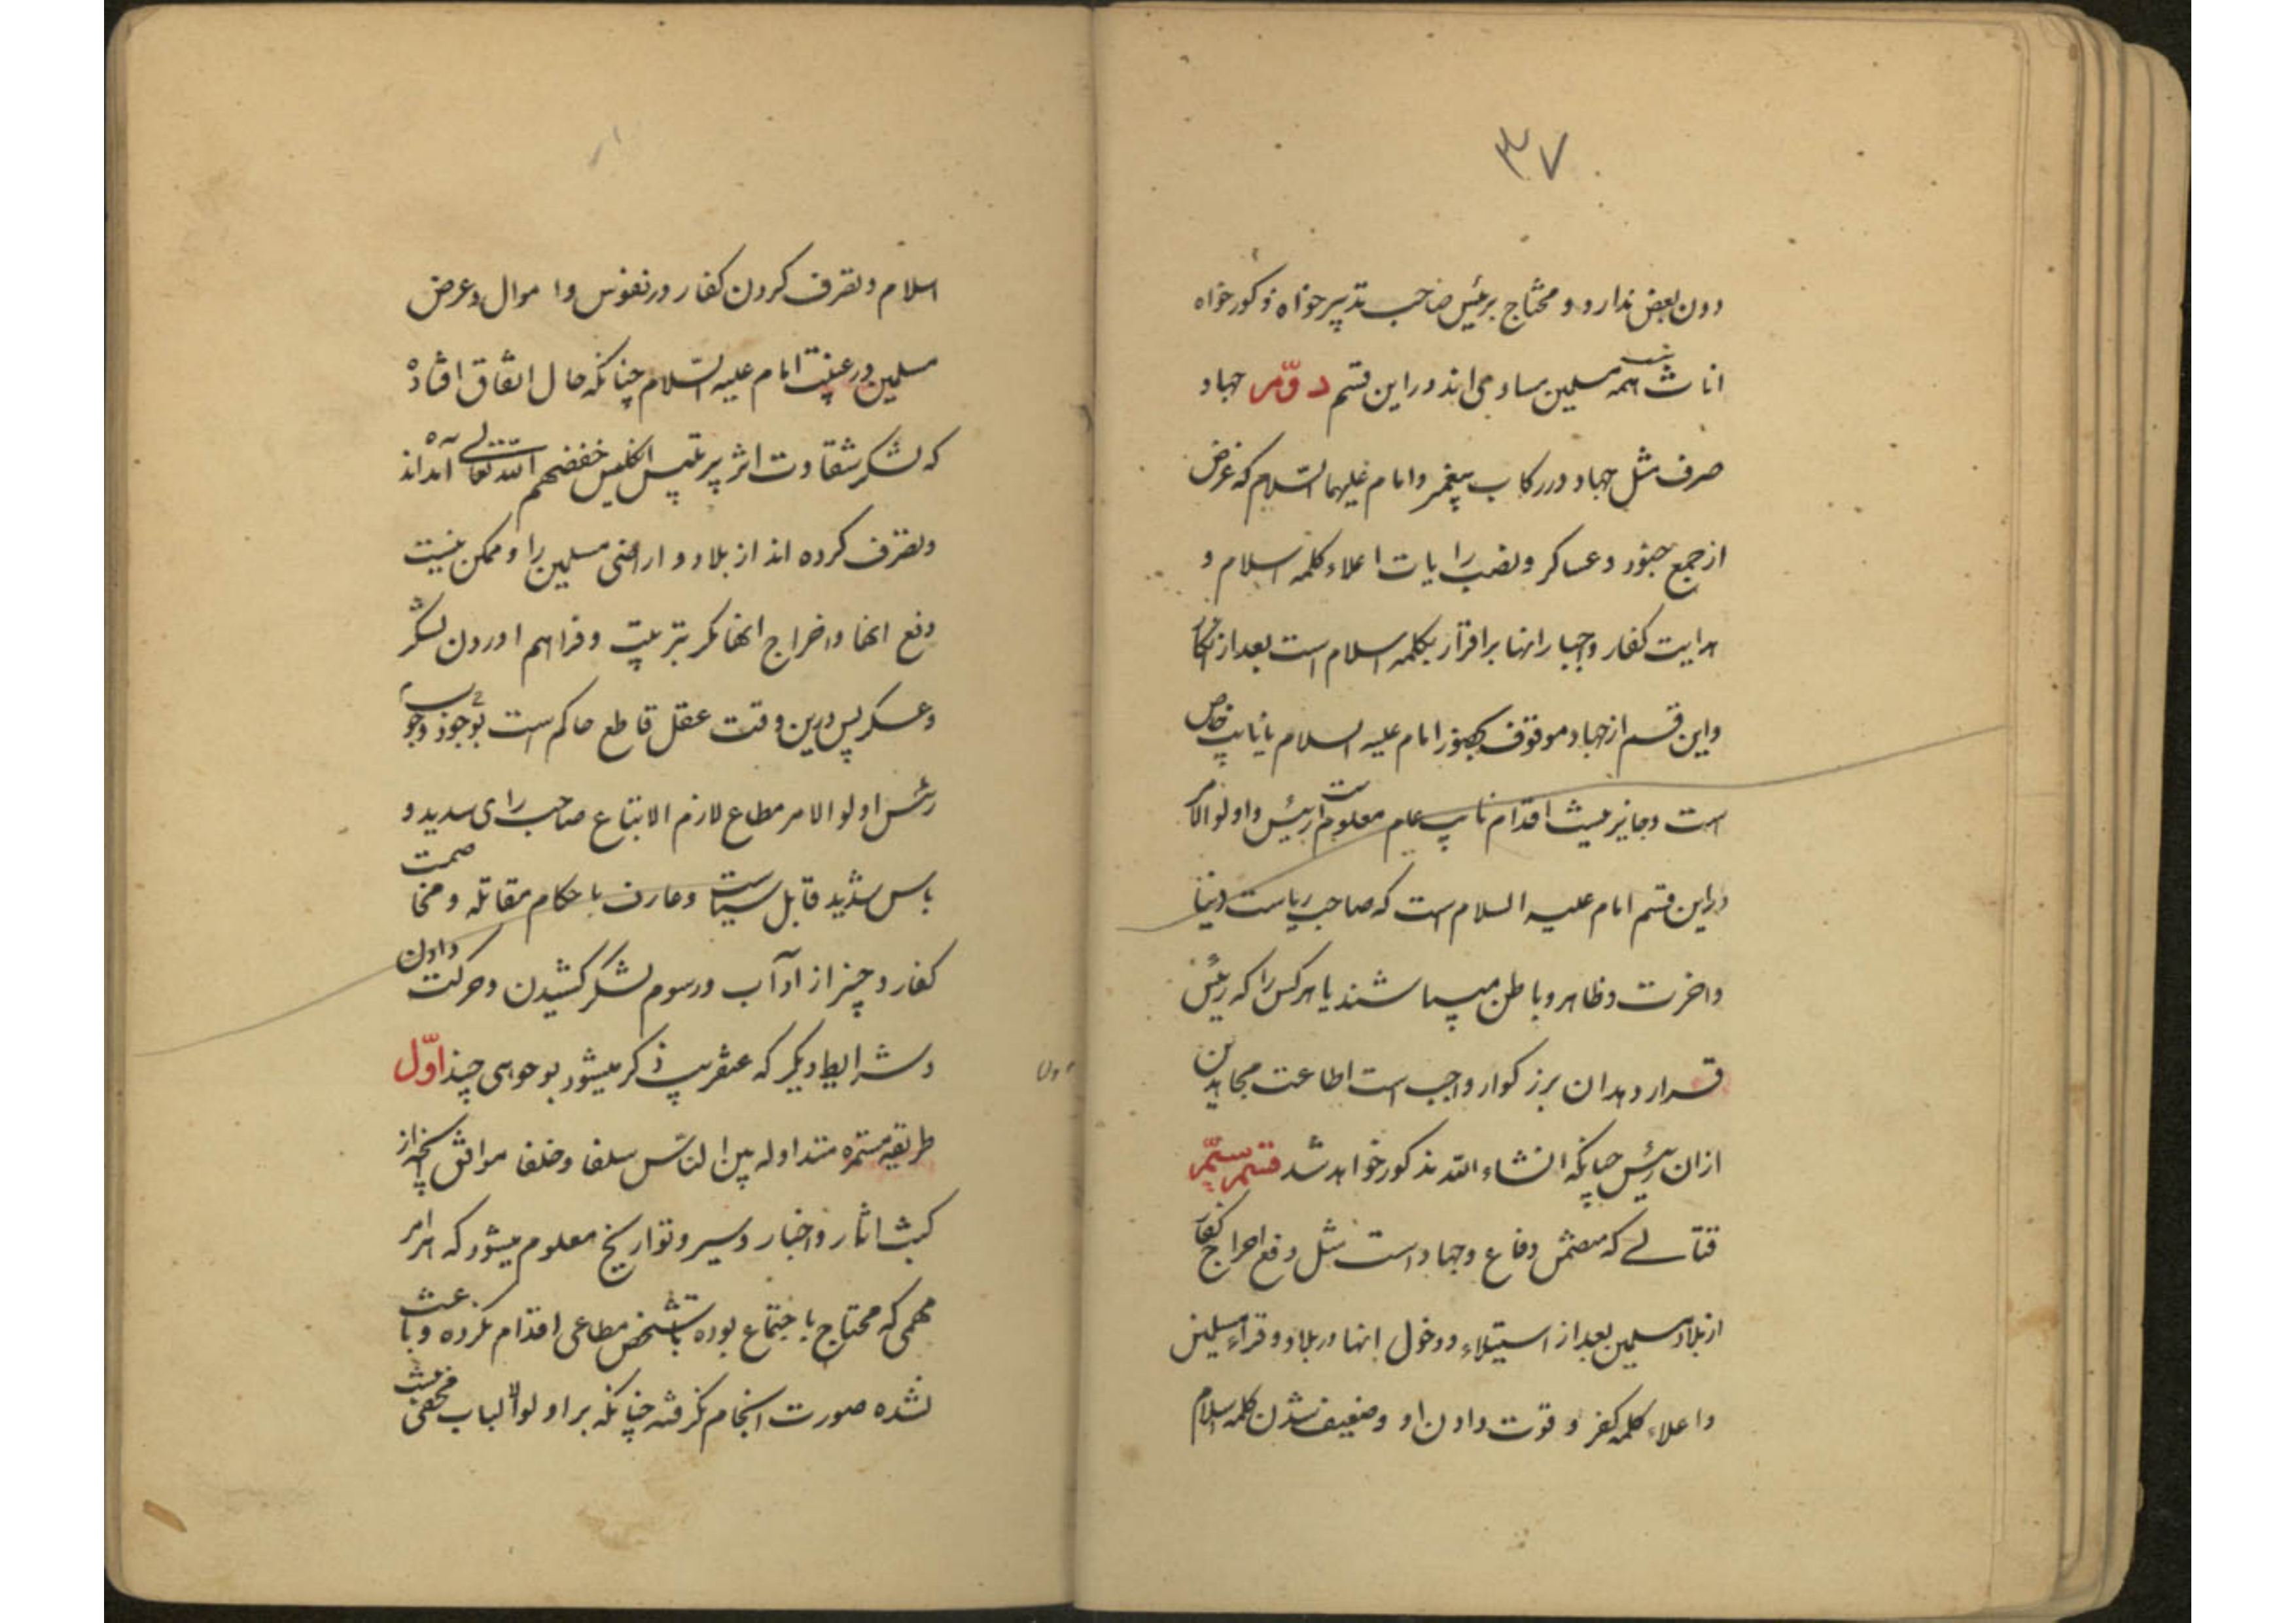 ۳۷
دون بعض ندارد و محتاج برئیس صاحب تدبیر خواه ذکور خواه
اناث همه مسلمین مساوی اند در این قسم دوّم جهاد
صرف مثل جهاد در رکاب پیغمبر و امام علیهما السّلام که غرض
از جمع جنود و عساکر و نصب رایات اعلاء کلمه اسلام و
هدایت کفار و اجبار انها بر اقرار بکلمه اسلام است بعد از انکار
و این قسم از جهاد موقوف بحضور امام علیه السلام یا نایب خاص
است و جایز نیست اقدام نایب عام معلوم است رئیس و اولو الامر
در این قسم امام علیه السلام است که صاحب ریاست دنیا
و اخرت و ظاهر و باطن میباشند یا هر کس را که رئیس
قرار دهد ان بزرکوار واجب است اطاعت مجاهدین
ازان رئیس چنانکه انشاء الله مذکور خواهد شد قسم سیّم
قتالے که متضمن دفاع و جهاد است مثل دفع اخراج کفار
از بلاد مسلمین بعد از استیلاء و دخول انها در بلاد و قراء مسلمین
و اعلاء کلمه کفر و قوت دادن او و ضعیف شدن کلمه اسلام
اسلام و تصرف کردن کفار در نفوس و اموال و عرض
مسلمین در غیبت امام علیه السّلام چنانکه حال اتفاق افتاده
که لشکر شقاوت اثر انکلیس خفضهم الله تعالی آمده‌اند
و تصرف کرده اند از بلاد و اراضی مسلمین را و ممکن نیست
دفع انها و اخراج انها مکر بتربیت و فراهم اوردن لشکر
و عسکر پس درین وقت عقل قاطع حاکم است بوجود وجوب
رئیس اولو الامر مطاع لازم الاتباع صاحب رای سدید و
باس شدید قابل سیاست و عارف باحکام مقاتله و مخاصمت
کفار و چیز از آداب و رسوم لشکر کشیدن و حرکت دادن
و شرایط دیکر که عنقریب ذکر میشود بوجوهی چند اوّل
طریقه مستمره متداوله بین النّاس سلفا و خلفا موافق انچه از
کتب اثار و اخبار و سیر و تواریخ معلوم میشود که هر امر
مهمی که محتاج باجتماع بوده تا شخص مطاعی اقدام نکرده و باعث
نشده صورت انجام نکرفته چنانکه بر اولو الالباب مخفی نیست